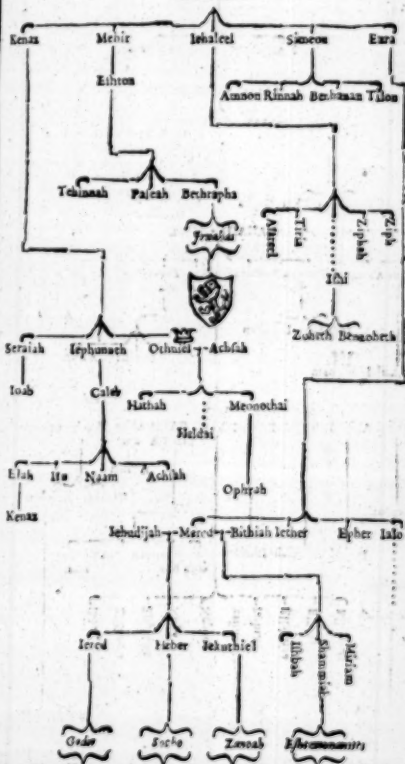 Kenaz Mehir Iehaleel Simeon Ezra
Eshton
Amnon Rinnah Benhanan Tilon
Tehinnah Paseah Bethrapha
Asareel Tiria Ziphah Ziph
Irnahas
Ishi
Zoheth Benzoheth
Seraiah Iephunneh Othniel Achsah
Ioab Caleb
Hathah Meonothai
Heldai
Elah Iru Naam Achsah
Ophrah
Kenaz
Iehudijah Mered Bithiah Iether Epher Ialo
Iered Heber Jekuthiel
Ishbah Shammai Miriam
Gedor Socho Zanoah